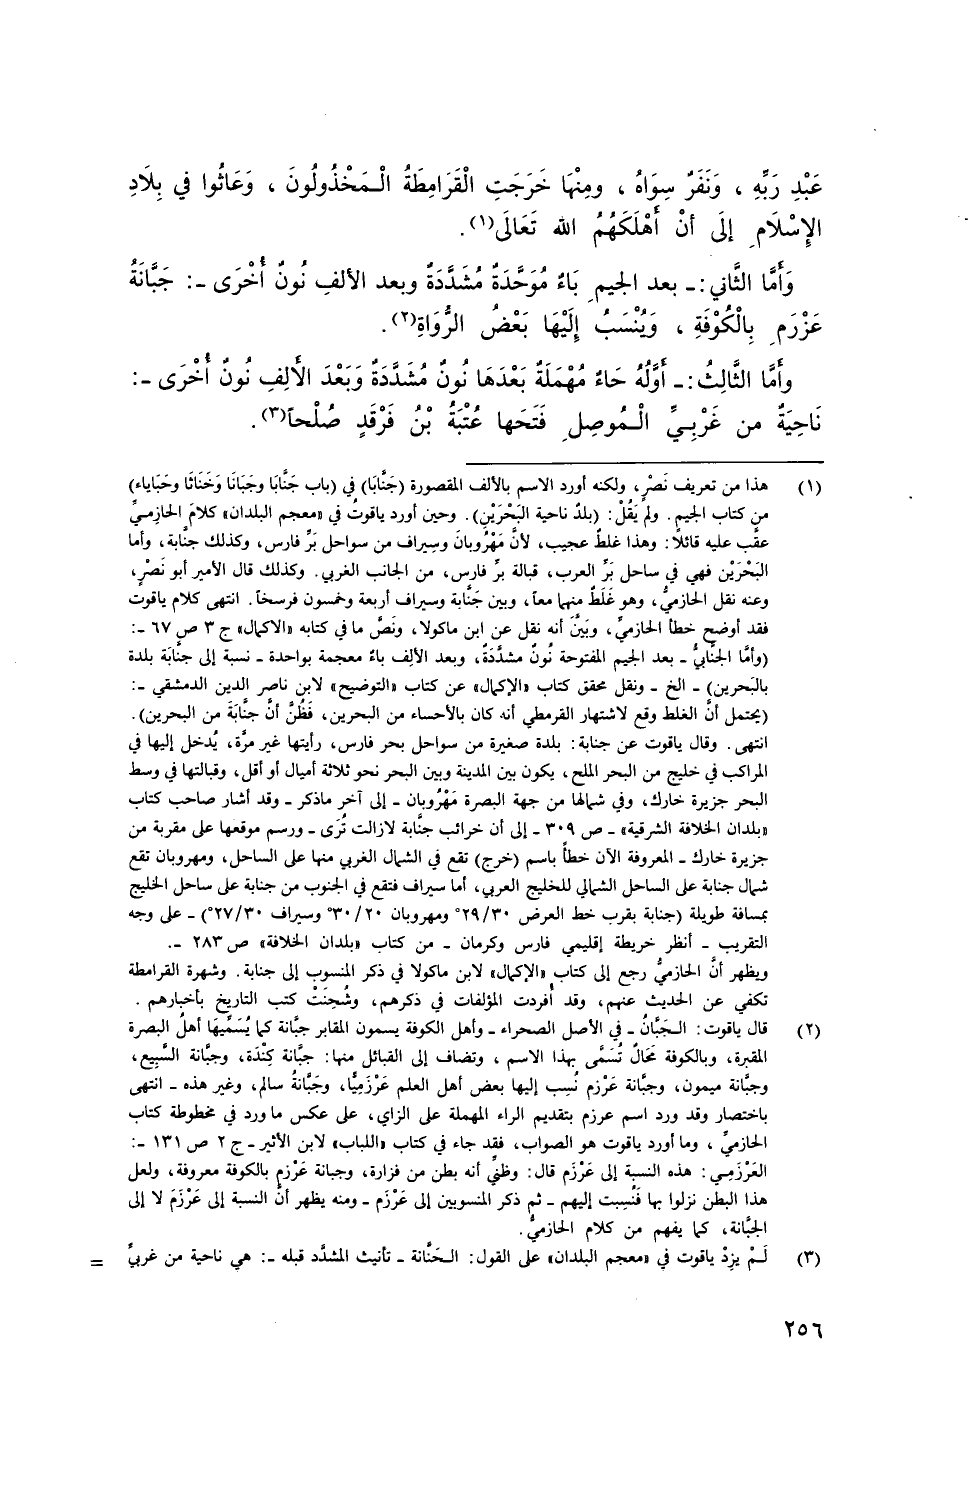 عَبْدِ رَبِّهِ ، وَنَفَرٌ سِوَاهُ ، ومِنْهَا خَرَجَتِ الْقَرَامِطَةُ الْـمَخْذُولُونَ ، وَعَاثُوا في بِلَادِ
الإِسْلَامِ إلَى أنْ أَهْلَكَهُمُ الله تَعَالَى(١).
وَأَمَّا الثَّاني :ـ بعد الجيمِ بَاءٌ مُوَحَّدَةٌ مُشَدَّدَةٌ وبعد الألفِ نُونٌ أُخْرَى ـ: جَبَّانَةُ
عَرْزَمِ بِالْكُوفَةِ ، وَيُنْسَبُ إِلَيْهَا بَعْضُ الرُّوَاةِ(٢).
وأَمَّا الثَّالِثُ :ـ أَوَّلُهُ حَاءٌ مُهْمَلَةٌ بَعْدَهَا نُونٌ مُشَدَّدَةٌ وَبَعْدَ الأَلِفِ نُونٌ أُخْرَى ـ:
نَاحِيَةٌ من غَرْبِيِّ الْـمُوصِلِ فَتَحَها عُتْبَةُ بْنُ فَرْقَدٍ صُلْحاً(٣).
(١) هذا من تعريف نَصْرٍ، ولكنه أورد الاسم بالألف المقصورة (جَنَّابَا) في (باب جَنَّابَا وجَبَانَا وَخَنَاثَا وحَبَاياء)
من كتاب الجيم. ولم يَقُلْ: (بلدٌ ناحية البَحْرَيْنِ). وحين أورد ياقوتُ في «معجم البلدان» كلامَ الحازمـيِّ
عقَّب عليه قائلاً: وهذا غلطٌ عجيب، لأنَّ مَهْرُوبانَ وسِيراف من سواحل بَرِّ فارس، وكذلك جنَّابة، وأما
البَحْرَيْن فهي في ساحل بَرِّ العرب، قبالة برِّ فارس، من الجانب الغربي. وكذلك قال الأمير أبو نَصْرٍ،
وعنه نقل الحازميُّ، وهو غَلَطٌ منهما معاً، وبين جَنَّابة وسيراف أربعة وخمسون فرسخاً. انتهى كلام ياقوت
فقد أوضح خطأ الحازميِّ، وبَيَّنَ أنه نقل عن ابن ماكولا، ونَصُّ ما في كتابه «الاكمال» ج ٣ ص ٦٧ ـ:
(وأمَّا الجَنَّابيُّ ـ بعد الجيم المفتوحة نُونٌ مشدَّدَةٌ، وبعد الألِف باءٌ معجمة بواحدة ـ نسبة إلى جنَّابَة بلدة
بالبَحرين) ـ الخ ـ ونقل محقق كتاب «الإكمال» عن كتاب «التوضيح» لابن ناصر الدين الدمشقي ـ:
(يحتمل أنَّ الغلط وقع لاشتهار القرمطي أنه كان بالأحساء من البحرين، فَظُنَّ أنَّ جنَّابَةَ من البحرين).
انتهى. وقال ياقوت عن جنابة: بلدة صغيرة من سواحل بحر فارس، رأيتها غير مرَّة، يُدخل إليها في
المراكب في خليج من البحر الملح، يكون بين المدينة وبين البحر نحو ثلاثة أميال أو أقل، وقبالتها في وسط
البحر جزيرة خارك، وفي شمالها من جهة البصرة مَهْرُوبان ـ إلى آخر ماذكر ـ وقد أشار صاحب كتاب
«بلدان الخلافة الشرقية» ـ ص ٣٠٩ ـ إلى أن خرائب جنَّابة لازالت تُرَى ـ ورسم موقعها على مقربة من
جزيرة خارك ـ المعروفة الآن خطأً باسم (خرج) تقع في الشمال الغربي منها على الساحل، ومهروبان تقع
شمال جنابة على الساحل الشمالي للخليج العربي، أما سيراف فتقع في الجنوب من جنابة على ساحل الخليج
بمسافة طويلة (جنابة بقرب خط العرض ٢٩/٣٠° ومهروبان ٣٠/٢٠° وسيراف ٢٧/٣٠°) ـ على وجه
التقريب ـ أنظر خريطة إقليمي فارس وكرمان ـ من كتاب «بلدان الخلافة» ص ٢٨٣ ـ.
ويظهر أنَّ الحازميَّ رجع إلى كتاب «الإكمال» لابن ماكولا في ذكر المنسوب إلى جنابة. وشهرة القرامطة
تكفي عن الحديث عنهم، وقد أفردت المؤلفات في ذكرهم، وشُحِنَتْ كتب التاريخ بأخبارهم .
(٢) قال ياقوت: الـجَبَّانُ ـ في الأصل الصحراء ـ وأهل الكوفة يسمون المقابر جبَّانة كما يُسَمِّيهَا أهلُ البصرة
المقبرة، وبالكوفة مَحَالُ تُسَمَّى بهذا الاسم ، وتضاف إلى القبائل منها: جبَّانة كِنْدَة، وجبَّانة السَّبِيع،
وجبَّانة ميمون، وجبَّانة عَرْزم نُسِب إليها بعض أهل العلم عَرْزَمِيًّا، وجَبَّانةُ سالم، وغير هذه ـ انتهى
باختصار وقد ورد اسم عرزم بتقديم الراء المهملة على الزاي، على عكس ماورد في مخطوطة كتاب
الحازميِّ ، وما أورد ياقوت هو الصواب، فقد جاء في كتاب «اللباب» لابن الأثير ـ ج ٢ ص ١٣١ ـ:
العَرْزَمـي: هذه النسبة إلى عَرْزَم قال: وظنِّي أنه بطن من فزارة، وجبانة عَرْزمٍ بالكوفة معروفة، ولعل
هذا البطن نزلوا بها فَنُسِبت إليهم ـ ثم ذكر المنسوبين إلى عَرْزَم ـ ومنه يظهر أنَّ النسبة إلى عَرْزَمَ لا إلى
الجَبَّانة، كما يفهم من كلام الحازميُّ.
(٣) لَـمْ يزِدْ ياقوت في «معجم البلدان» على القول: الـحَنَّانة ـ تأنيث المشدَّد قبله ـ: هي ناحية من غربيِّ =
٢٥٦